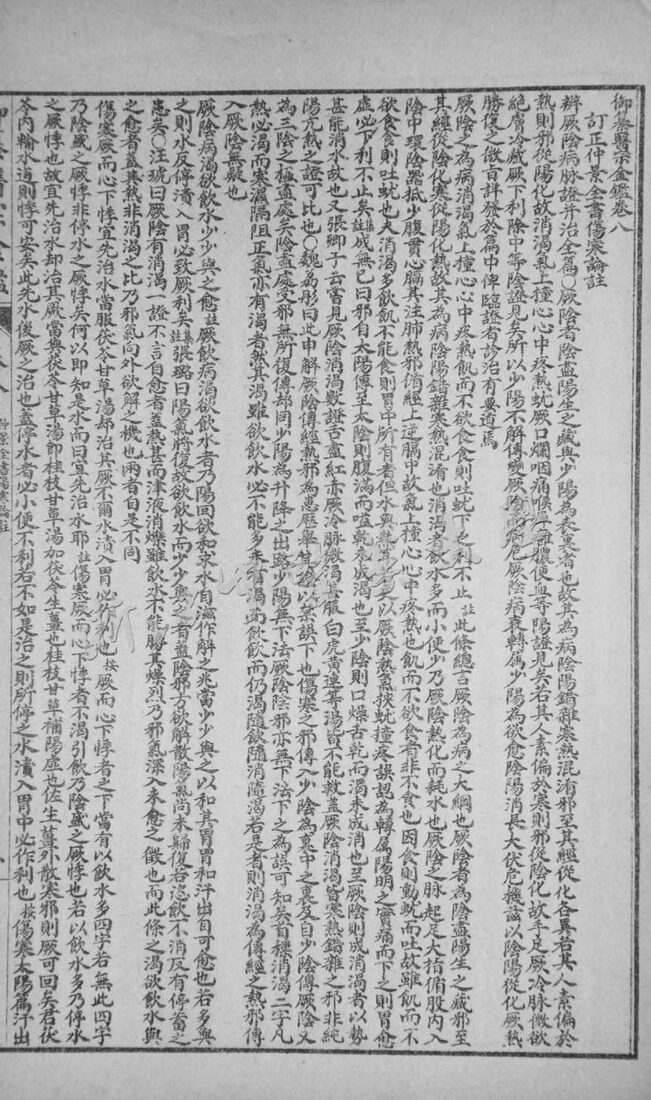 御纂醫宗金鑑卷八
訂正仲景全書傷寒論註
辨厥陰病脉證并治全篇○厥陰者陰盡陽生之臟與少陽為表裏者也故其為病陰陽錯雜寒熱混淆邪至其經從化各異若其人素偏於
熱則邪從陽化故消渴氣上撞心心中疼熱蚘厥口爛咽痛喉痹癰膿便血等陽證見矣若其人素偏於寒則邪從陰化故手足厥冷脉微欲
絶膚冷臟厥下利除中等陰證見矣所以少陽不解傳變厥陰而病危厥陰病衰轉屬少陽為欲愈陰陽消長大伏危機論以陰陽從化厥熱
勝復之微旨詳發於篇中俾臨證者診治有要道焉
厥陰之為病消渴氣上撞心心中疼熱飢而不欲食食則吐蚘下之利不止註此條總言厥陰為病之大綱也厥陰者為陰盡陽生之臟邪至
其經從陰化寒從陽化熱故其為病陰陽錯雜寒熱混淆也消渴者飲水多而小便少乃厥陰熱化而耗水也厥陰之脉起足大指循股內入
陰中環陰器抵少腹貫心膈其注肺熱邪循經上逆膈中故氣上撞心心中疼熱也飢而不欲食者非不食也因食則動蚘而吐故雖飢而不
欲食食則吐蚘也夫消渴多飲飢不能食則胃中所有者但水與熱耳若更以厥陰熱氣挾蚘撞疼誤認為轉屬陽明之實痛而下之則胃愈
虛必下利不止矣註成無已曰邪自太陽傳至太陰則腹滿而嗌乾未成渴也至少陰則口燥舌乾而渴未成消也至厥陰則成消渴者以勢
甚能消水故也又張卿子云嘗見厥陰消渴數證舌盡紅赤厥冷脉微渴甚服白虎黃連等湯皆不能救蓋厥陰消渴皆寒熱錯雜之邪非純
陽亢熱之證可比也○魏荔彤曰此申解厥陰傳經熱邪為患歷舉其證以禁誤下也傷寒之邪傳入少陰為裏中之裏及自少陰傳厥陰又
為三陰之極盡處矣陰盡處受邪無所復傳却同少陽為升降之出路少陽無下法厥陰邪亦無下法下之為誤可知矣首標消渴二字凡
熱必渴而寒濕隔阻正氣亦有渴者然其渴雖欲飲水必不能多未有渴而飲飲而仍渴隨飲隨消隨渴若是者則消渴為傳經之熱邪傳
入厥陰無疑也
厥陰病渴欲飲水少少與之愈註厥陰病渴欲飲水者乃陽回欲和求水自滋作解之兆當少少與之以和其胃胃和汗出自可愈也若多與
之則水反停漬入胃必致厥利矣註張璐曰陽氣將復故欲飲水而少少與之者蓋陰邪方欲解散陽氣尚未歸復若恣飲不消反有停蓄之
患矣○汪琥曰厥陰有消渴一證不言自愈者蓋熱甚而津液消爍雖飲水不能勝其燥烈乃邪氣深入未愈之徵也而此條之渴欲飲水與
之愈者蓋其熱非消渴之比乃邪氣向外欲解之機也兩者自是不同
傷寒厥而心下悸宜先治水當服茯苓甘草湯却治其厥不爾水漬入胃必作利也按厥而心下悸者之下當有以飲水多四字若無此四字
乃陰盛之厥悸非停水之厥悸矣何以即知是水而曰宜先治水耶註傷寒厥而心下悸者不渴引飲乃陰盛之厥悸也若以飲水多乃停水
之厥悸也故宜先治水却治其厥當與茯苓甘草湯即桂枝甘草湯加茯苓生薑也桂枝甘草補陽虛也佐生薑外散寒邪則厥可回矣君茯
苓內輸水道則悸可安矣此先水後厥之治也蓋停水者必小便不利若不如是治之則所停之水漬入胃中必作利也按傷寒太陽篇汗出